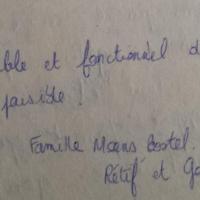 ble et fonctionnel d
paisible.
Famille Moens Bostel.
Rétif et Go